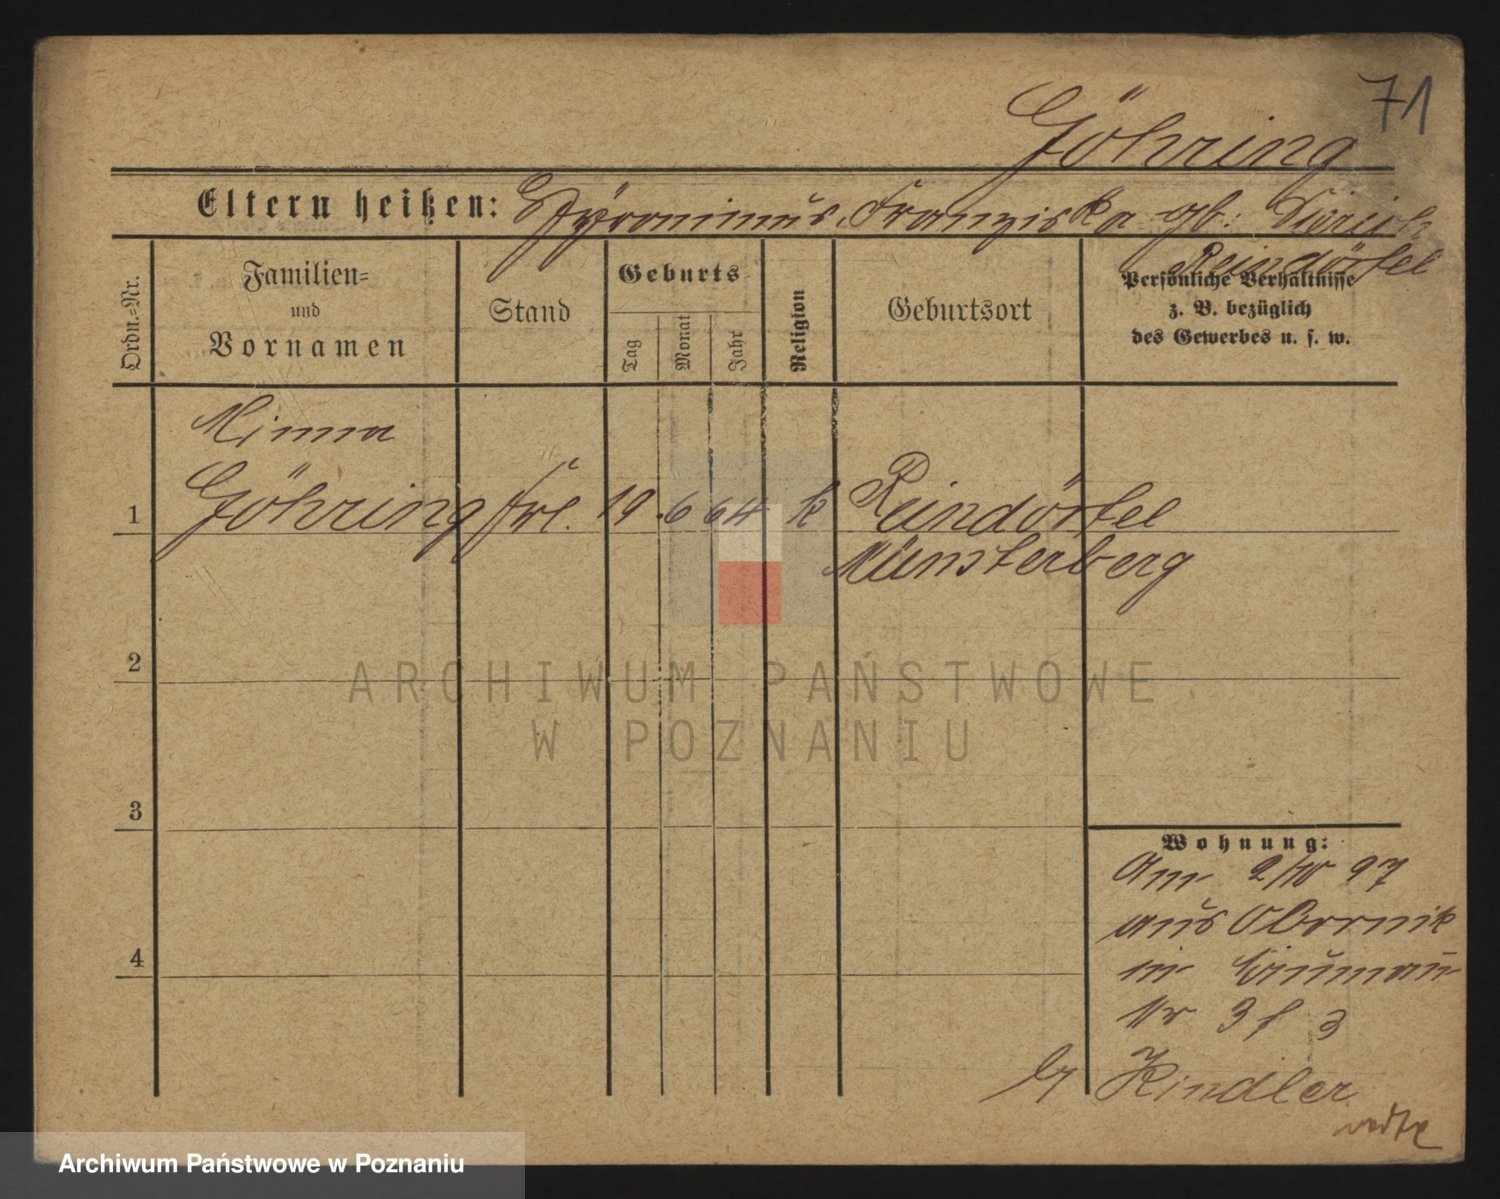 71
Göhring
Eltern heißen: Hyronimus, Franziska gb:
Reindörfel
Ordn.-Nr.
Familien-
und
Vornamen
Stand
Geburts-
Tag
Monat
Jahr
Religion
Geburtsort
Persönliche Verhältnisse
z. B. bezüglich
des Gewerbes u. s. w.
Minna
1 Göhring Frl. 19 . 6 64 k Reindörfel
Münsterberg
2
ARCHIWUM PAŃSTWOWE
W POZNANIU
3
Wohnung:
Am 2/10 97
aus Obornik
4
in
Nr 3 f 3
by Kindler
Archiwum Państwowe w Poznaniu